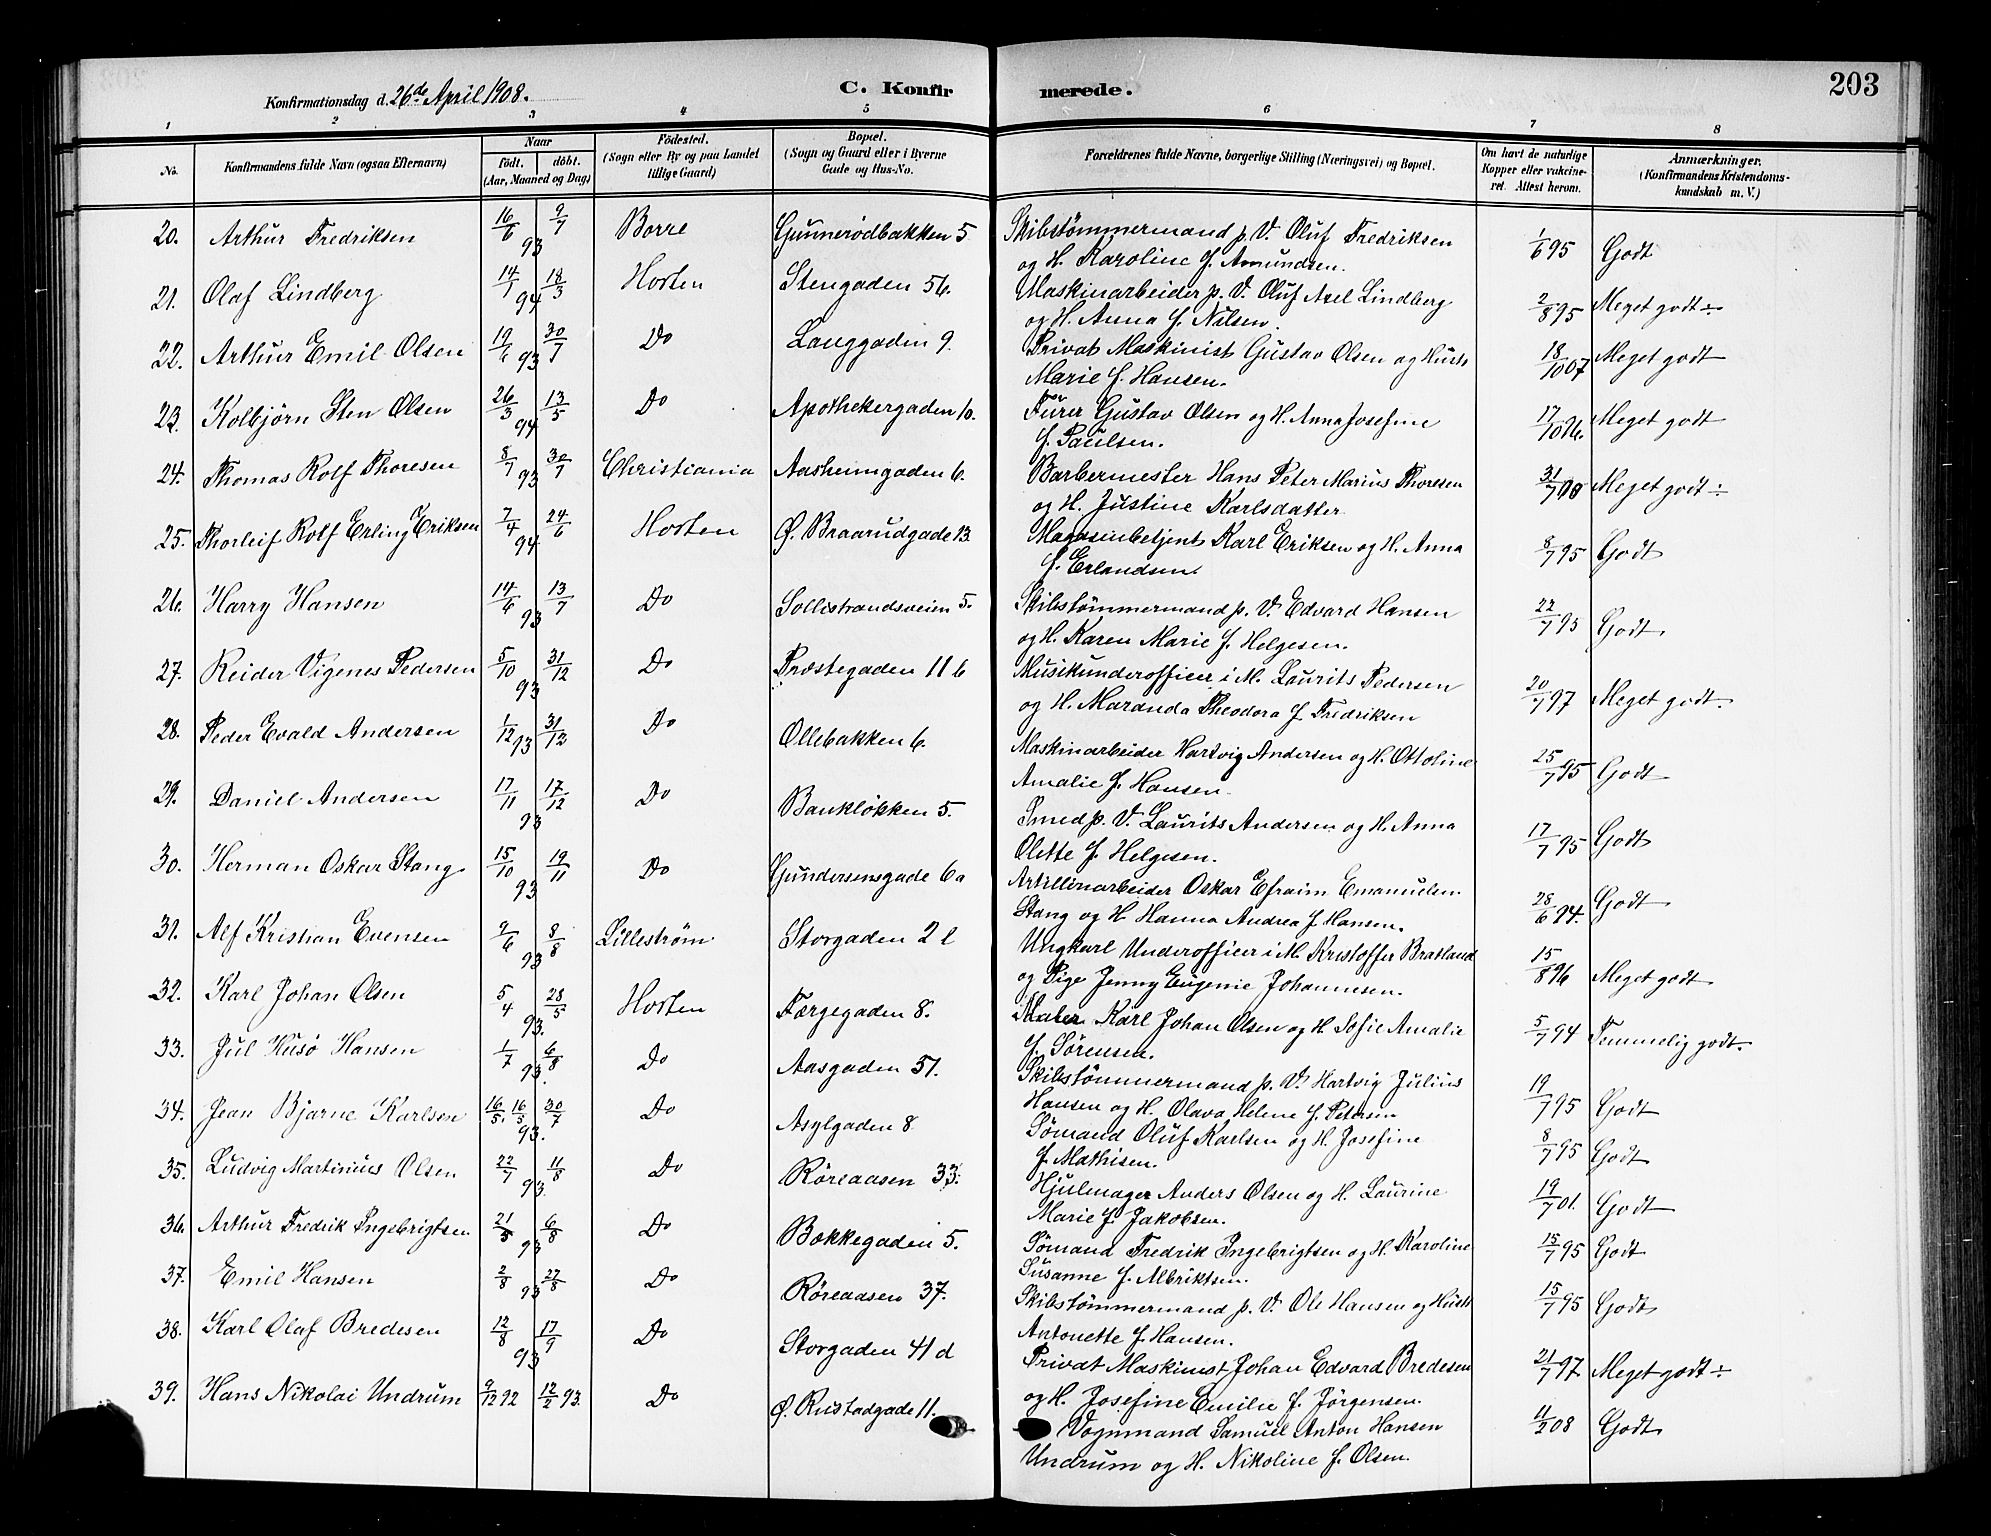 203
Konfirmationsdag d. 26de April 1908.
C. Konfirmerede.
1 2 3 4 5 6 7 8
No. Konfirmandens fulde Navn (ogsaa Efternavn) Naar födt. döbt. (Aar, Maaned og Dag) Födested. (Sogn eller By og paa Landet tillige Gaard) Bopæl. (Sogn og Gaard eller i Byerne Gade og Hus-No. Forældrenes fulde Navne, borgerlige Stilling (Næringsvei) og Bopæl. Om havt de naturlige Kopper eller vakcineret. Attest herom. Anmærkninger. (Konfirmandens Kristendomskundskab m. V.)
20. Arthur Fredriksen 16/6 93 9/7 Borre Gunnerödbakken 5 Skibstömmermand p. V. Oluf Fredriksen 1/6 95 Godt
og H. Karoline f. Amundsen.
21. Olaf Lindberg 14/1 94 18/3 Horten Stengaden 56. Maskinarbeider p. V. Oluf Axel Lindberg 2/8 95 Meget godt ÷
og H. Anna f. Nilsen.
22. Arthur Emil Olsen 19/6 93 30/7 Do Langgaden 9. Privat Maskinist Gustav Olsen og Hustr 18/10 07 Meget godt
Marie f. Hansen.
23. Kolbjörn Sten Olsen 26/3 94 13/5 Do Apothekergaden 10. Fürer Gustav Olsen og H. Anna Josefine 17/10 06. Meget godt
f. Paulsen.
24. Thomas Rolf Thoresen 8/7 93 30/7 Christiania Aasheimgaden 6. Barbermester Hans Peter Marius Thoresen 31/7 00 Meget godt ÷
og H. Justine Karlsdatter
25. Thorleif Rolf Erling Eriksen 7/4 94 24/6 Horten Ø. Braarudgade 13 Magasinbetjent Karl Eriksen og H. Anna 8/7 95 Godt
f. Erlandsen.
26. Harry Hansen 14/6 93 13/7 Do Sollistrandsveien 5. Skibstömmermand p. V. Edvard Hansen 22/7 95 Godt
og H. Karen Marie f. Helgesen.
27. Reider Vigenes Pedersen 5/10 93 31/12 Do Præstegaden 11 b Musikunderofficer i M. Laurits Pedersen 20/7 97 Meget godt.
og H. Maranda Theodora f. Fredriksen
28. Peder Evald Andersen 1/12 93 31/12 Do Ollebakken 6. Maskinarbeider Hartvig Andersen og H. Ottoline 25/7 95 Godt
Amalie f. Hansen.
29. Daniel Andersen 17/11 93 17/12 Do Banklökken 5. Smed p. V. Laurits Andersen og H. Anna 17/7 95 Godt
Olette f. Helgesen.
30. Herman Oskar Stang 15/10 93 19/11 Do Gundersensgade 6a Artilliriarbeider Oskar Efraim Emanuelen 28/6 94. Godt
Stang og H. Hanna Andrea f. Hansen.
31. Alf Kristian Evensen 9/6 93 8/8 Lilleström Storgaden 2 l Ungkarl Underofficer i M. Kristoffer Bratland 15/8 96 Meget godt
og Pige Jenny Eugenie Johannesen.
32. Karl Johan Olsen 5/4 93. 28/5 Horten Færgegaden 8. Maler Karl Johan Olsen og H. Sofie Amalie 5/7 94 Temmelig godt.
f. Sörensen.
33. Jul Husö Hansen 1/7 93. 6/8 Do Aasgaden 51. Skibstömmermand p. V. Hartvig Julius 19/7 95 Godt
Hansen og H. Olava Helene f. Petersen
34. Jean Bjarne Karlsen 16/5. 16/5 93. 30/7 Do Asylgaden 8 Sömand Oluf Karlsen og H. Josefine 8/7 95 Godt
f. Mathisen.
35. Ludvig Martinius Olsen 22/7 93. 11/8 Do Röreaasen 33. Hjulmager Anders Olsen og H. Laurine 19/7 01. Godt
Marie f. Jakobsen.
36. Arthur Fredrik Ingebrigtsen 21/5 93 6/8 Do Bækkegaden 5. Sömand Fredrik Ingebrigtsen og H. Karoline 15/7 95 Godt
Susanne f. Albriktsen.
37. Emil Hansen 2/8 93 27/8 Do Röreaasen 37. Skibstömmermand p. V. Ole Hansen og Hustr 15/7 95 Godt
Antonette f. Hansen.
38. Karl Olaf Bredesen 12/8 93 17/9 Do Storgaden 41 d Privat Maskinist Johan Edvard Bredesen 21/7 97 Meget godt ÷
og H. Josefine Emilie f. Jörgensen.
39. Hans Nikolai Undrum 9/12 92 12/2 93. Do Ø. Rustadgade 11. Vognmand Samuel Anton Hansen 11/2 08 Godt
Undrum og H. Nikoline f. Olsen.